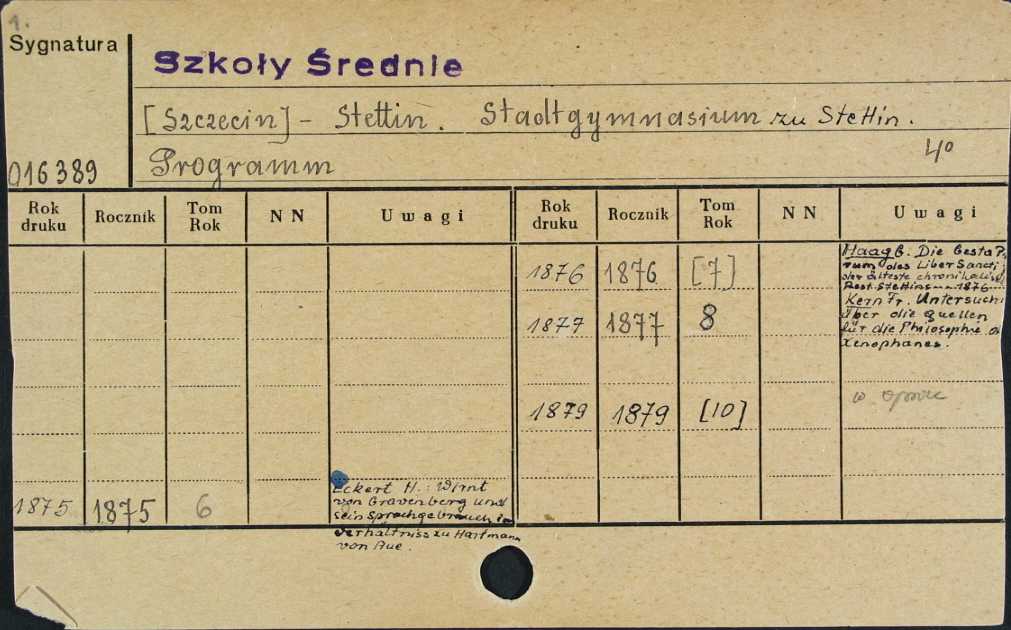 1.
Sygnatura
Szkoły Średnie
[Szczecin] - Stettin. Stadtgymnasium zu Stettin.
4°
016389
Programm
Rok druku Rocznik Tom Rok N N Uwagi Rok druku Rocznik Tom Rok N N Uwagi
1875 1875 6
Eckert H.: Wirnt
von Gravenberg und
sein Sprachgebrauch im
Verhältniss zu Hartmann
von Aue.
1876 1876 [7]
Haag G. Die Gesta P.
rum des Liber Sancti
der älteste
Stettins 1876
1877 1877 8
Kern Fr. Untersuch
über die Quellen
für die Philosophie
Xenophanes.
1879 1879 [10]
w oprac